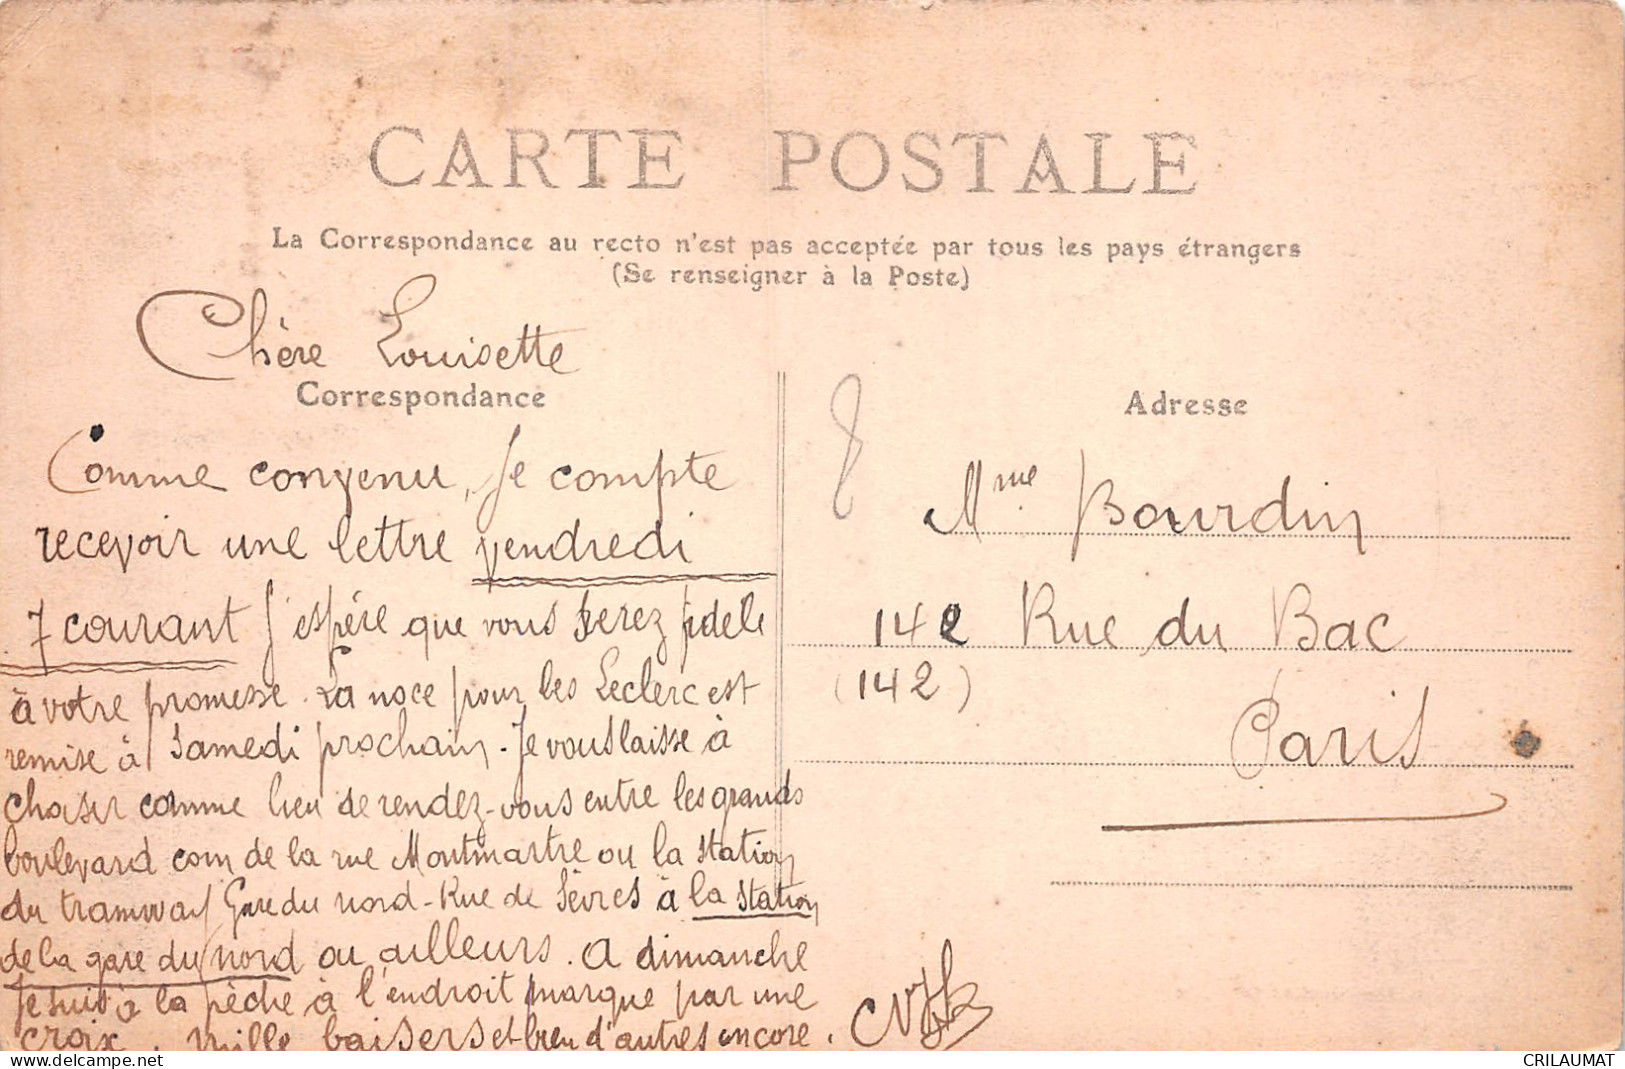 CARTE POSTALE
La Correspondance au recto n'est pas acceptée par tous les pays étrangers
(Se renseigner à la Poste)
Chère Louisette
Correspondance
Comme convenu, je compte
recevoir une lettre vendredi
7 courant J'espère que vous serez fidèle
à votre promesse. La noce pour les Leclerc est
remise à samedi prochain. Je vous laisse à
choisir comme lieu de rendez-vous entre les grands
boulevard coin de la rue Montmartre ou la station
du tramway Gare du nord-Rue de Sèvres à la station
de la gare du nord ou ailleurs. A dimanche
Je suis à la pêche à l'endroit marque par une
croix. Mille baisers et bien d'autres encore.
Adresse
Mme. Bourdin
142 Rue du Bac
(142)
Paris
delcampe.net
CRILAUMAT